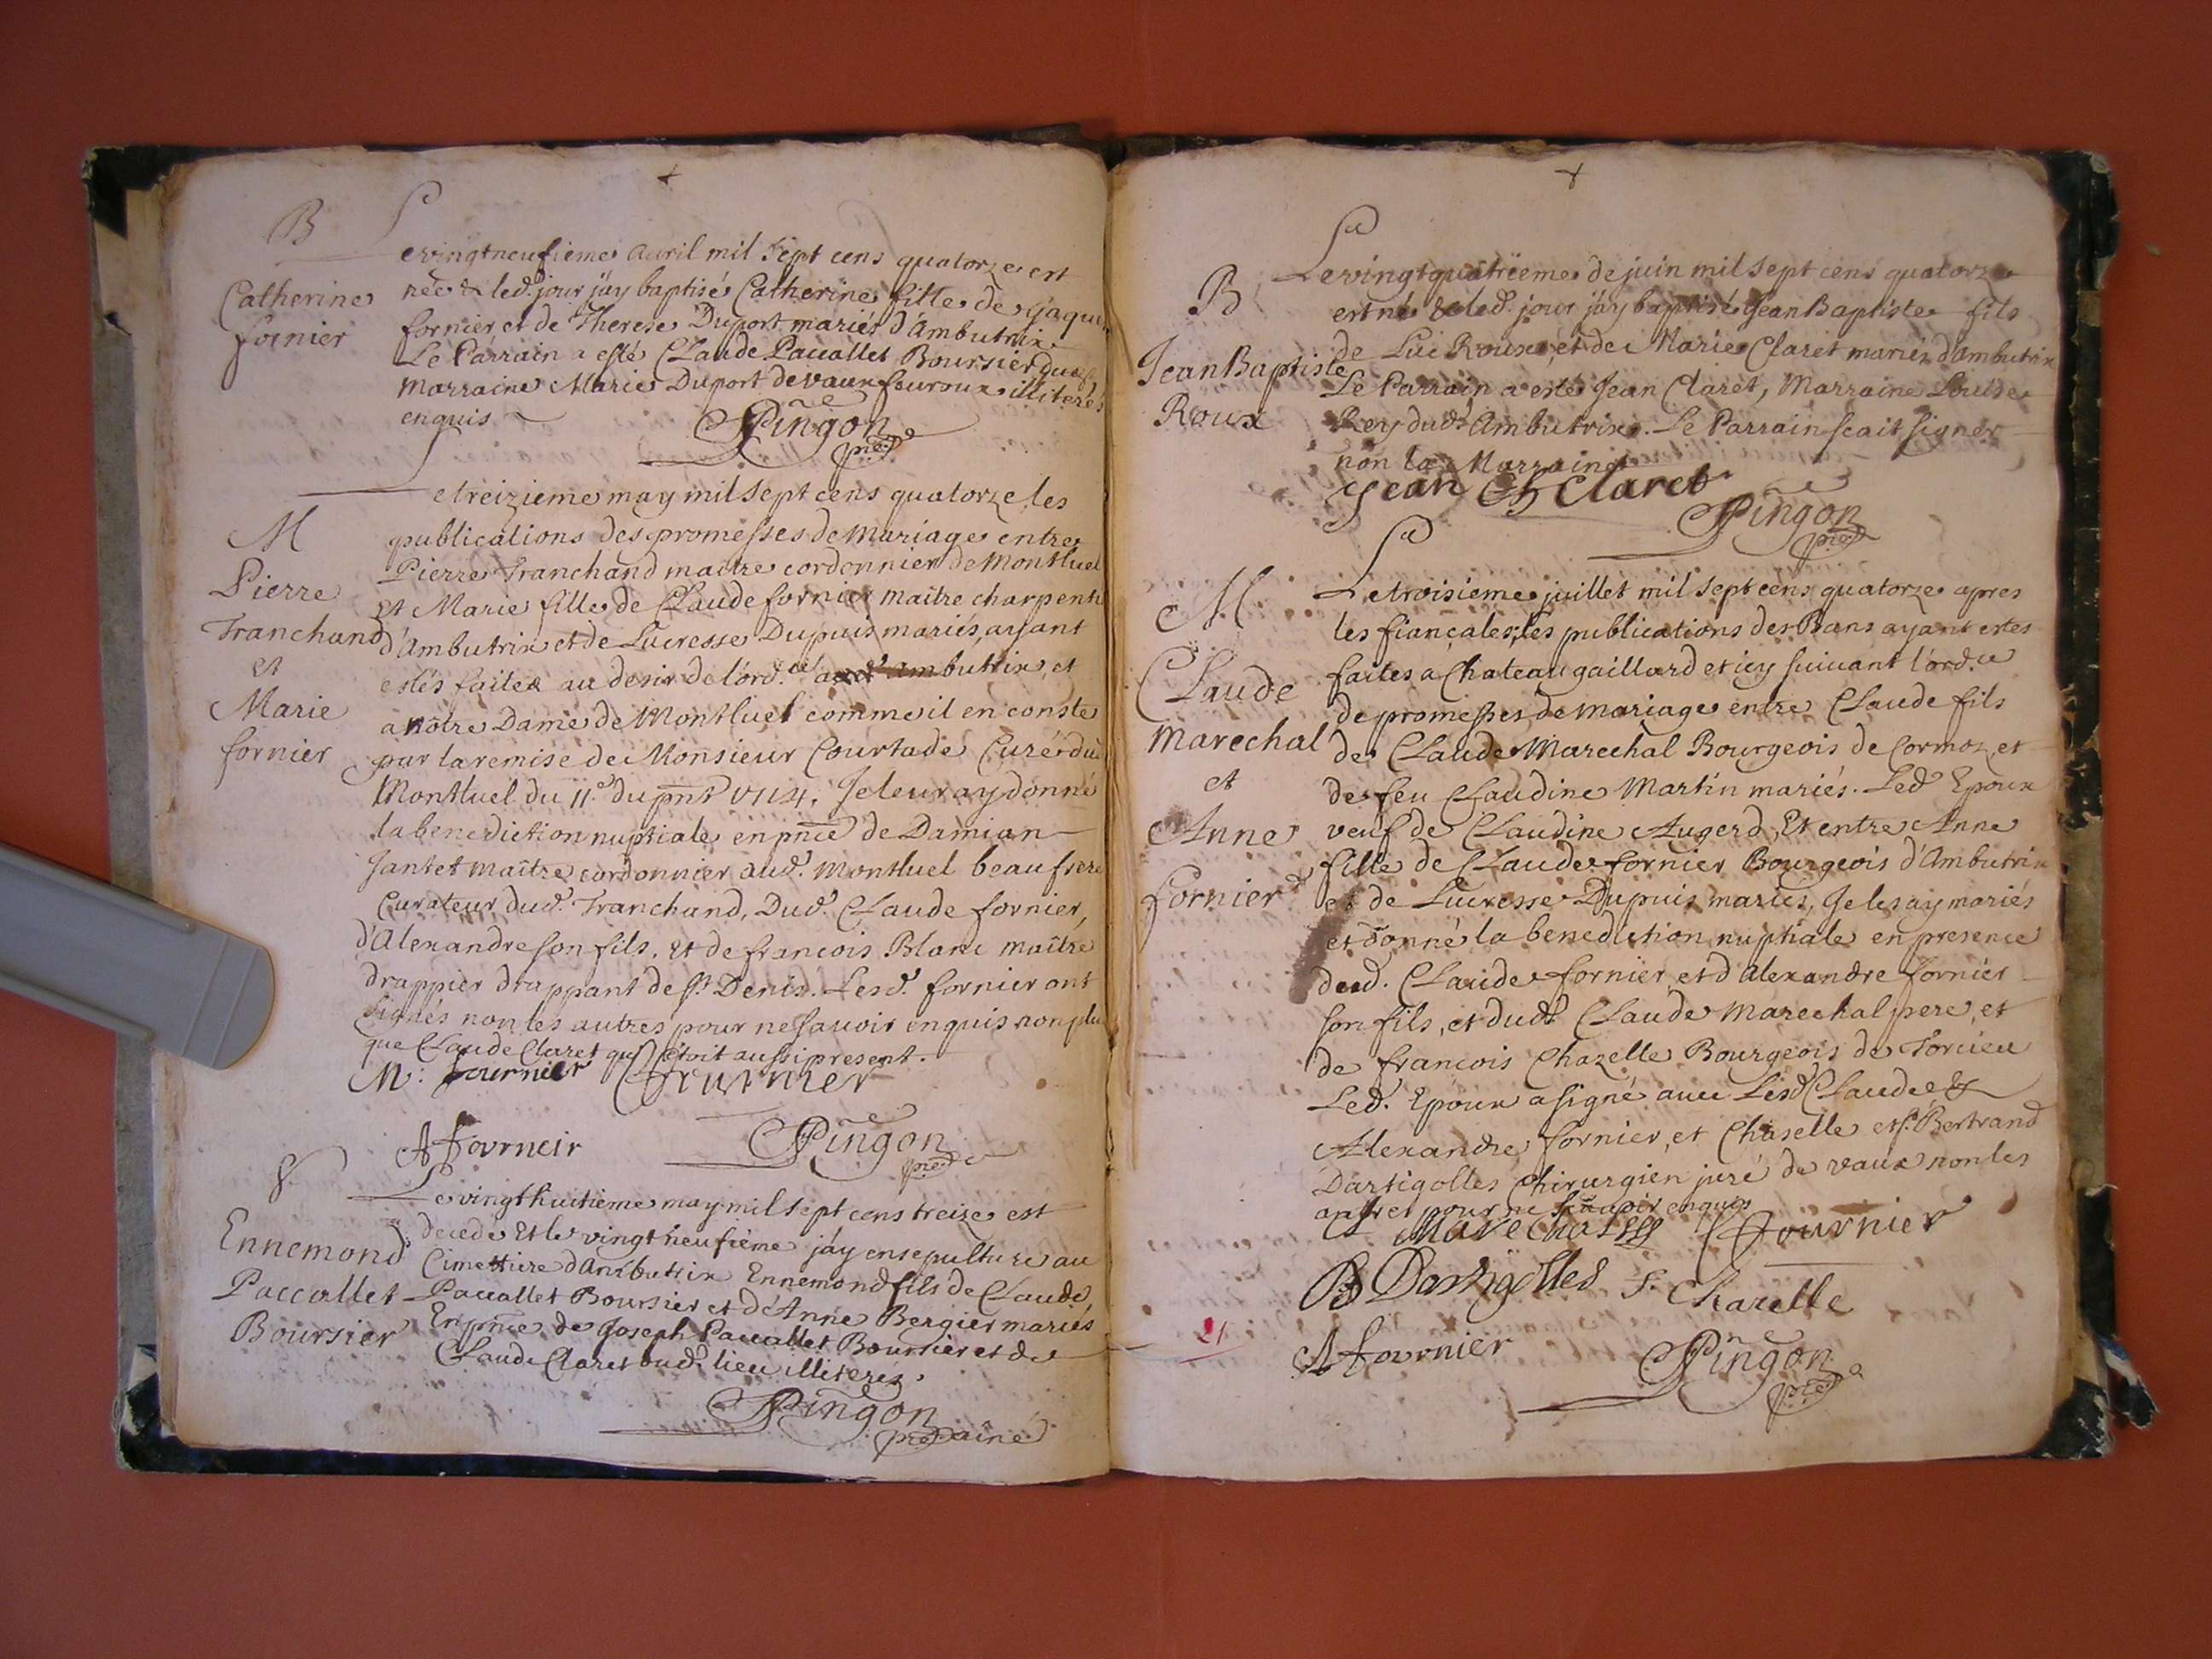 B
Catherine
fornier
Le vingtneufieme avril mil sept cens quatorze est
née & led. jour jäy baptisé Catherine fille de Jaque
fornier et de Therese Duport mariés d'Ambutrix
Le Parrain a esté Claude Paccallet Boursier dud.
Marraine Marie Duport de vaux feuroux illiterés
enquis
Pingon
pre
M
Pierre
Tranchand
et
Marie
fornier
Le treizieme may mil sept cens quatorze, les
publications des promesses de Mariage entre
Pierre Tranchand maitre cordonnier de Montluel
Et Marie fille de Claude fornier maître charpenti
d'Ambutrix et de Lucresse Dupuis mariés, ayant
estés faites au desir de l'ord.ce a Ambutrix, et
a nôtre Dame de Montluel comme il en conste
par la remise de Monsieur Courtade Curé du
Montluel du 11.e du pnt 1714. Je leur ay donné
la benediction nuptiale en pnce de Damian
Jantet maître cordonnier aud. Montluel beaufrere
Curateur dud. Tranchand, Dud. Claude fornier,
d'Alexandre son fils, et de francois Blanc maître
drappier drappant de St Denis. Lesd. fornier ont
signés non les autres pour ne savoir enquis non plu
que Claude Claret qui étoit aussi present.
M: fournier C fournier
A fovrneir
Pingon
pre
S
Ennemond
Paccallet
Boursier
Le vingthuitieme may mil sept cens treize est
decedé Et le vingtneufieme jäy ensepulturé au
Cimettiere d'Ambutrix Ennemond fils de Claude
Paccallet Boursier et d'Anne Bergier mariés
En pnce de Joseph Paccallet Boursier et de
Claude Claret dud. lieu illiterés.
Pingon
pre aîné
B
Jean Baptiste
Roux
Le vingtquatrieme de juin mil sept cens quatorze
est né & led. jour jäy baptisé Jean Baptiste fils
de Luc Roux et de Marie Claret mariés d'Ambutrix
Le Parrain a esté Jean Claret, Marraine Louise
Rey dud. Ambutrix. Le Parrain scait signer
non la Marraine
Jean Claret
Pingon
pre
M
Claude
Marechal
et
Anne
fornier
Le troisieme juillet mil sept cens quatorze apres
les fiancales, les publications des Bans ayant estes
faites a Chateaugaillard et icy suivant l'ord.ce
de promesses de mariage entre Claude fils
de Claude Marechal Bourgeois de Cormoz et
de feu Claudine Martin mariés. Led. Epoux
veuf de Claudine Augerd, Et entre Anne
fille de Claude fornier Bourgeois d'Ambutrix
et de Lucresse Dupuis mariés, Je les ay mariés
et donné la benediction nuptiale en presence
dud. Claude fornier, et d'Alexandre fornier
son fils, et dud. Claude Marechal pere, et
de francois Chazelle Bourgeois de Torcieu
Led. Epoux a signé avec Lesd. Claude &
Alexandre fornier, et Chaselle et Sr. Bertrand
Dartigolles Chirurgien juré de vaux non les
autres pour ne scavoir enquis
Marechal C fournier
B Dartigolles F. Chazelle
A fovrnier
Pingon
pre
21